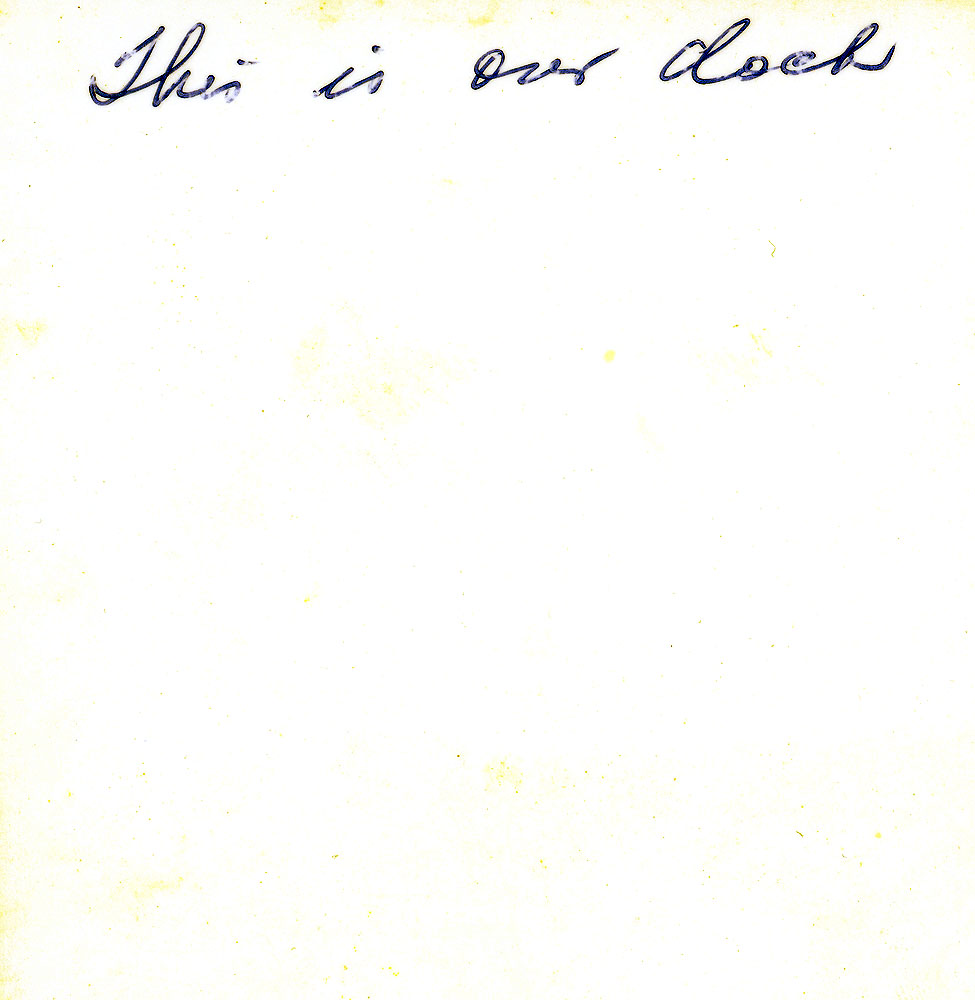 This is our dock